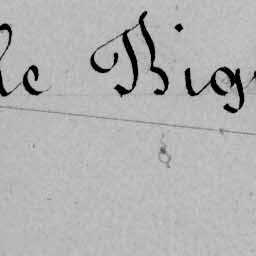 le Big